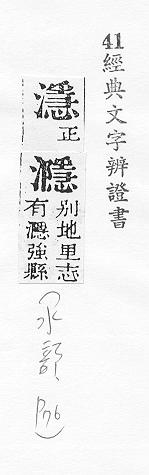 41經典文字辨證書
濦
正
㶏
別地里志
有㶏強縣
(水部 P76)